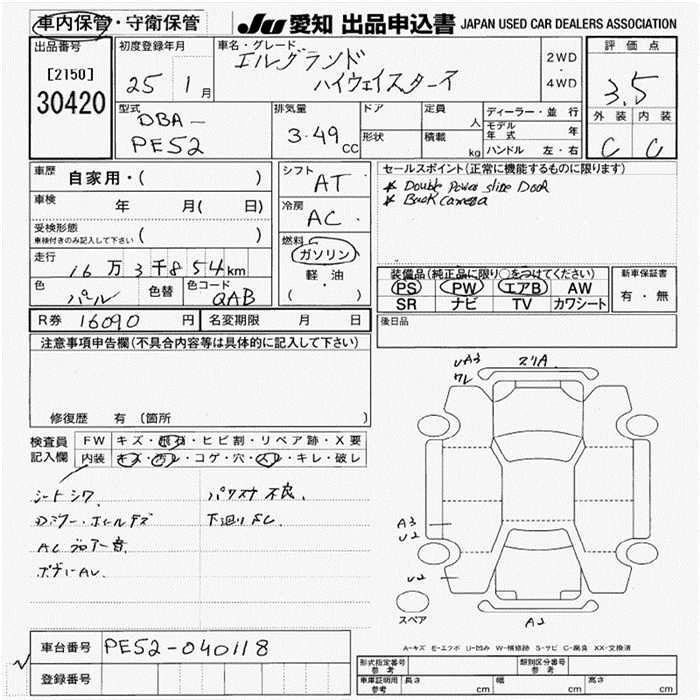 車内保管・守衛保管
JU 愛知 出品申込書 JAPAN USED CAR DEALERS ASSOCIATION
出品番号
[2150]
30420
初度登録年月
25 1月
車名・グレード
エルグランド
ハイウェイスターズ
2WD
・
4WD
評価点
3.5
外装 内装
C C
型式
DBA-
PE52
排気量
3.49cc
ドア
形状
定員 人
積載 kg
ディーラー・並行
モデル年式 年
ハンドル 左・右
車歴 自家用・( )
車検 年 月( 日)
受検形態
車検付きのみ記入して下さい ( )
走行
16万3千854km
色 パール 色替 色コード QAB
シフト
AT
冷房
AC
燃料
ガソリン
・
軽・油
( )
セールスポイント(正常に機能するものに限ります)
* Double Power slide Door
* Back camera
装備品(純正品に限り○をつけてください)
PS PW エアB AW
SR ナビ TV カワシート
新車保証書
有・無
R券 16090円 名変期限 月 日
後日品
注意事項申告欄(不具合内容等は具体的に記入して下さい)
修復歴 有 〔箇所 〕
検査員
記入欄
FW キズ・飛石・ヒビ割・リペア跡・X要
内装 キズ・汚レ・コゲ・穴・スレ・キレ・破レ
シートシワ
パワステ不良
Dミラー・ホイールキズ
下廻りFC
ACブロアー音
ボディーAU
UA3
ワレ
スリA
A3
U2
U2
A2
スペア
A-キズ E-エクボ U-凹み W-補修跡 S-サビ C-腐食 XX-交換済
車台番号 PE52-040118
登録番号
形式指定番号
参考
類別区分番号
参考
車庫証明用
参考
長さ cm 幅 cm 高さ cm